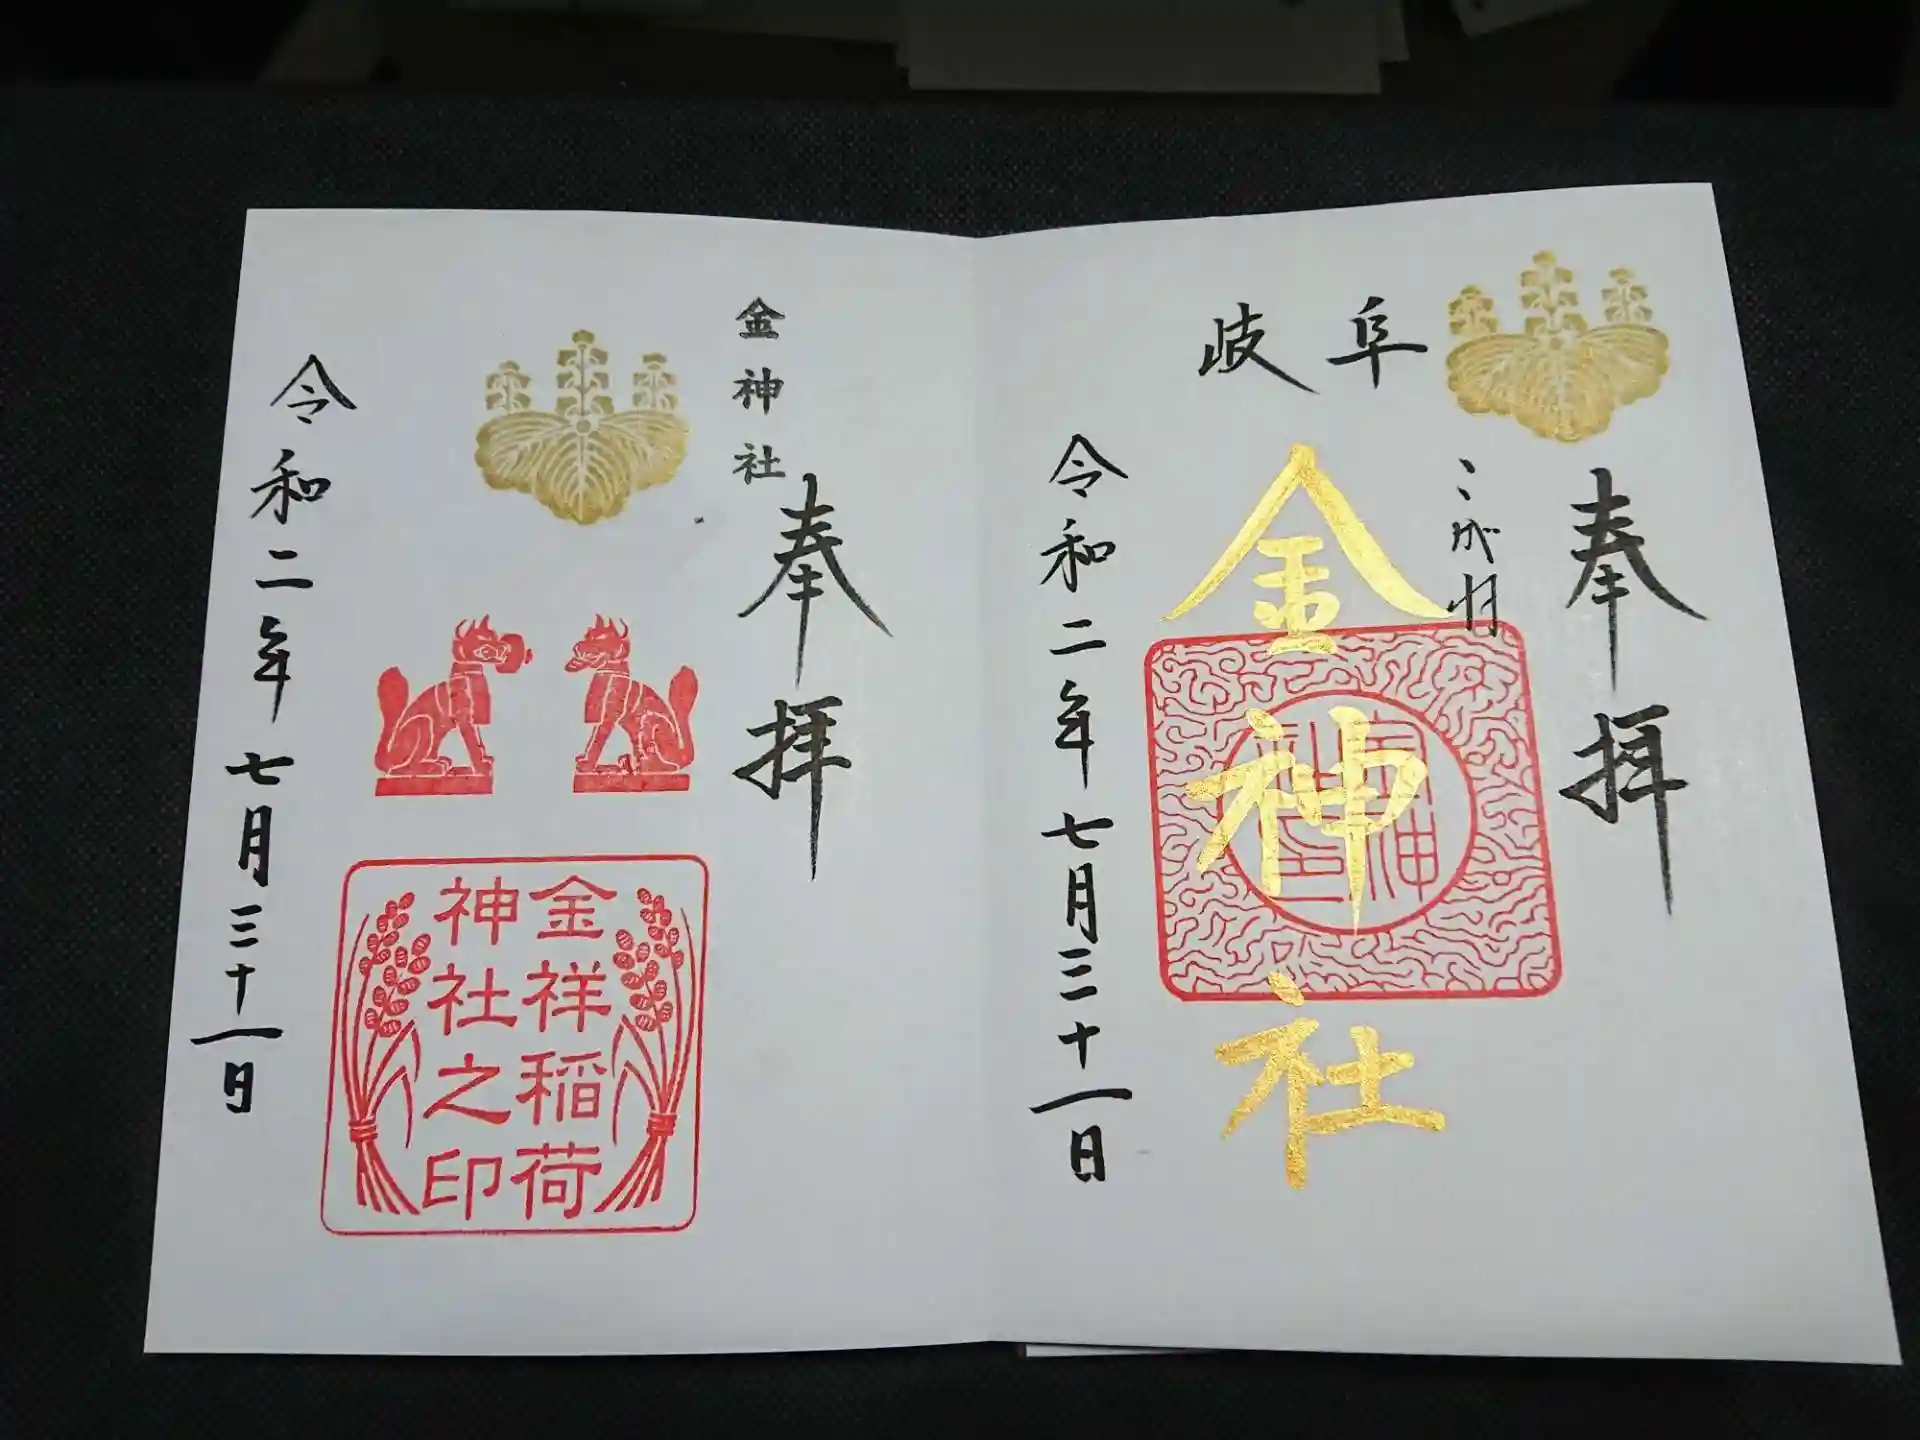 岐阜
奉拝
こがね
金神社
令和二年七月三十一日
金神社
奉拝
令和二年七月三十一日
金祥稲荷
神社之印